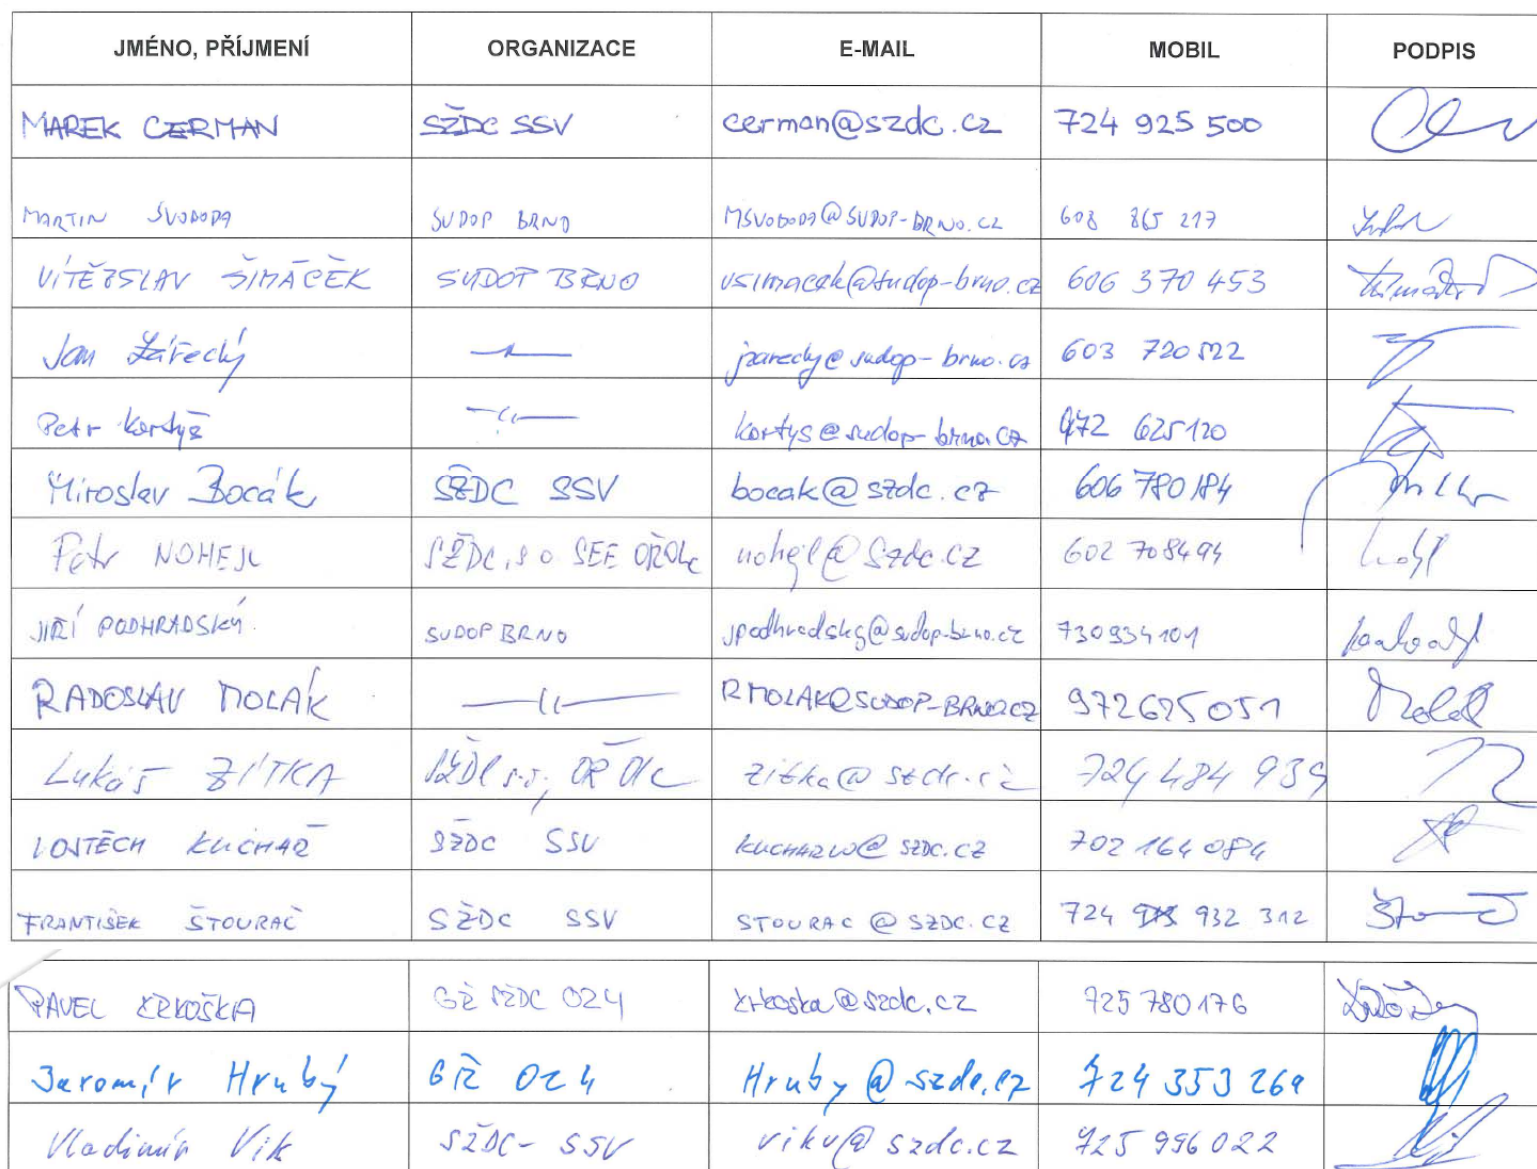 JMÉNO, PŘÍJMENÍ ORGANIZACE E-MAIL MOBIL PODPIS
MAREK CERMAN SŽDC SSV cerman@szdc.cz 724 925 500
MARTIN SVOBODA SUDOP BRNO MSVOBODA@SUDOP-BRNO.CZ 608 865 217
VÍTĚZSLAV ŠIMÁČEK SUDOP BRNO vsimacek@sudop-brno.cz 606 370 453
Jan 603 720 522
Petr Kortyš kortys@sudop-brno.cz 972 625120
Miroslav Bocák SŽDC SSV bocak@szdc.cz 606 780 184
Petr NOHEJL SŽDC, s.o. SEE nohejl@szdc.cz 602 708494
JIŘÍ PODHRADSKÝ SUDOP BRNO jpodhradsky@sudop-brno.cz 730934101
RADOSLAV MOLÁK RMOLAK@SUDOP-BRNO.CZ 972625051
Lukáš ZÍTKA SŽDC s.o., OŘ OLC zitka@szdc.cz 724 484 939
VOJTĚCH KUCHAŘ SŽDC SSV KUCHARVO@SZDC.CZ 702 164 084
FRANTIŠEK ŠTOURAČ SŽDC SSV STOURAC@SZDC.CZ 724 932 312
PAVEL KRKOŠKA GŘ SŽDC O24 krkoska@szdc.cz 725 780 176
Jaromír Hrubý GŘ O24 Hruby@szdc.cz 724 353 269
Vladimír Vik SŽDC-SSV vikv@szdc.cz 725 996 022